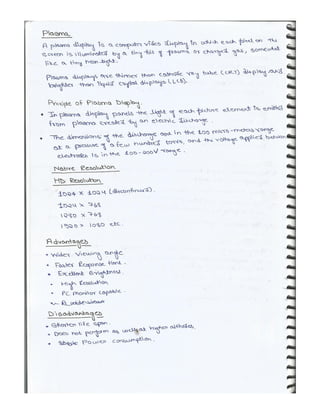 Plasma.
A plasma display is a computer video display in which each pixel on the
screen is illuminated by a tiny bit of plasma or charged gas, somewhat
like a tiny neon light.
Plasma displays are thinner than cathode ray tube (CRT) display and
brighter than liquid crystal displays (LCD).
Principle of Plasma Display.
• In plasma display panels the light of each picture element is emitted
from plasma created by an electric discharge.
• The dimensions of the discharge are in the 100 micro-metres range
at a pressure of a few hundred torrs, and the voltage applied between
electrodes is in the 100-200V range.
Native Resolution
HD Resolution
1024 × 1024 (discontinued).
1024 × 768
1280 × 768
1920 × 1080 etc.
Advantages
• Wider viewing angle
• Faster Response time.
• Excellent Brightness.
• High Resolution
• PC monitor capable.
Disadvantages
• Shorter life span.
• Does not perform as well at higher altitudes.
• Power consumption.